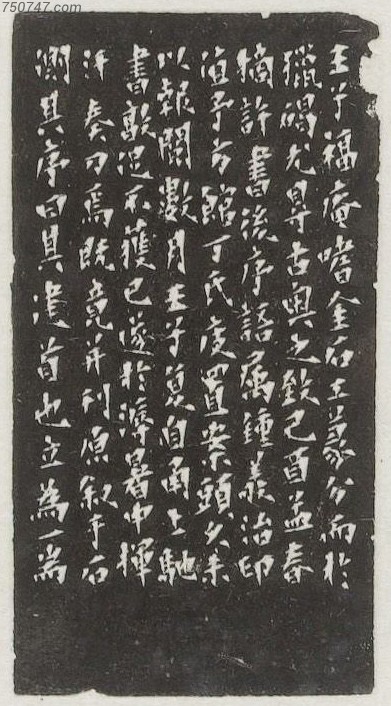 750747.com
王子福庵嗜金石工篆分而於
獵碣尤尋古奥之欽己酉孟春
摘許書流序語屬鍾義治印
值予方館丁氏庋置案頭久未
以報閱數月王子自甬上馳
書敦迫不獲已遂於溽暑中揮
汗奏刀焉既竟并刊原敘于石
側其序曰其建首也立為一耑